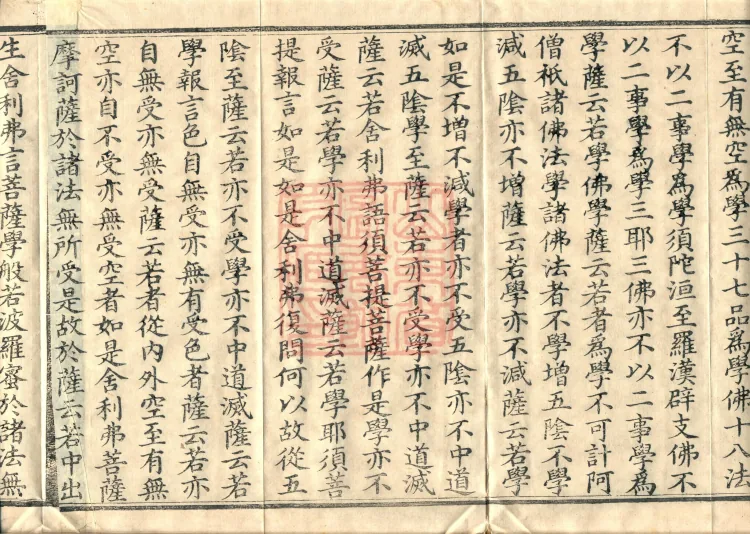 空至有無空為學三十七品為學佛十八法
不以二事學為學須陀洹至羅漢辟支佛不
以二事學為學三耶三佛亦不以二事學為
學薩云若學佛學薩云若者為學不可計阿
僧祇諸佛法學諸佛法者不學增五陰不學
減五陰亦不增薩云若學亦不減薩云若學
如是不增不減學者亦不受五陰亦不中道
滅五陰學至薩云若亦不受學亦不中道滅
薩云若舍利弗語須菩提菩薩作是學亦不
受薩云若學亦不中道滅薩云若學耶須菩
提報言如是如是舍利弗復問何以故從五
陰至薩云若亦不受學亦不中道滅薩云若
學報言色自無受亦無有受色者薩云若亦
自無受亦無受薩云若者從內外空至有無
空亦自不受亦無受空者如是舍利弗菩薩
摩訶薩於諸法無所受是故於薩云若中出
生舍利弗言菩薩學般若波羅蜜於諸法無